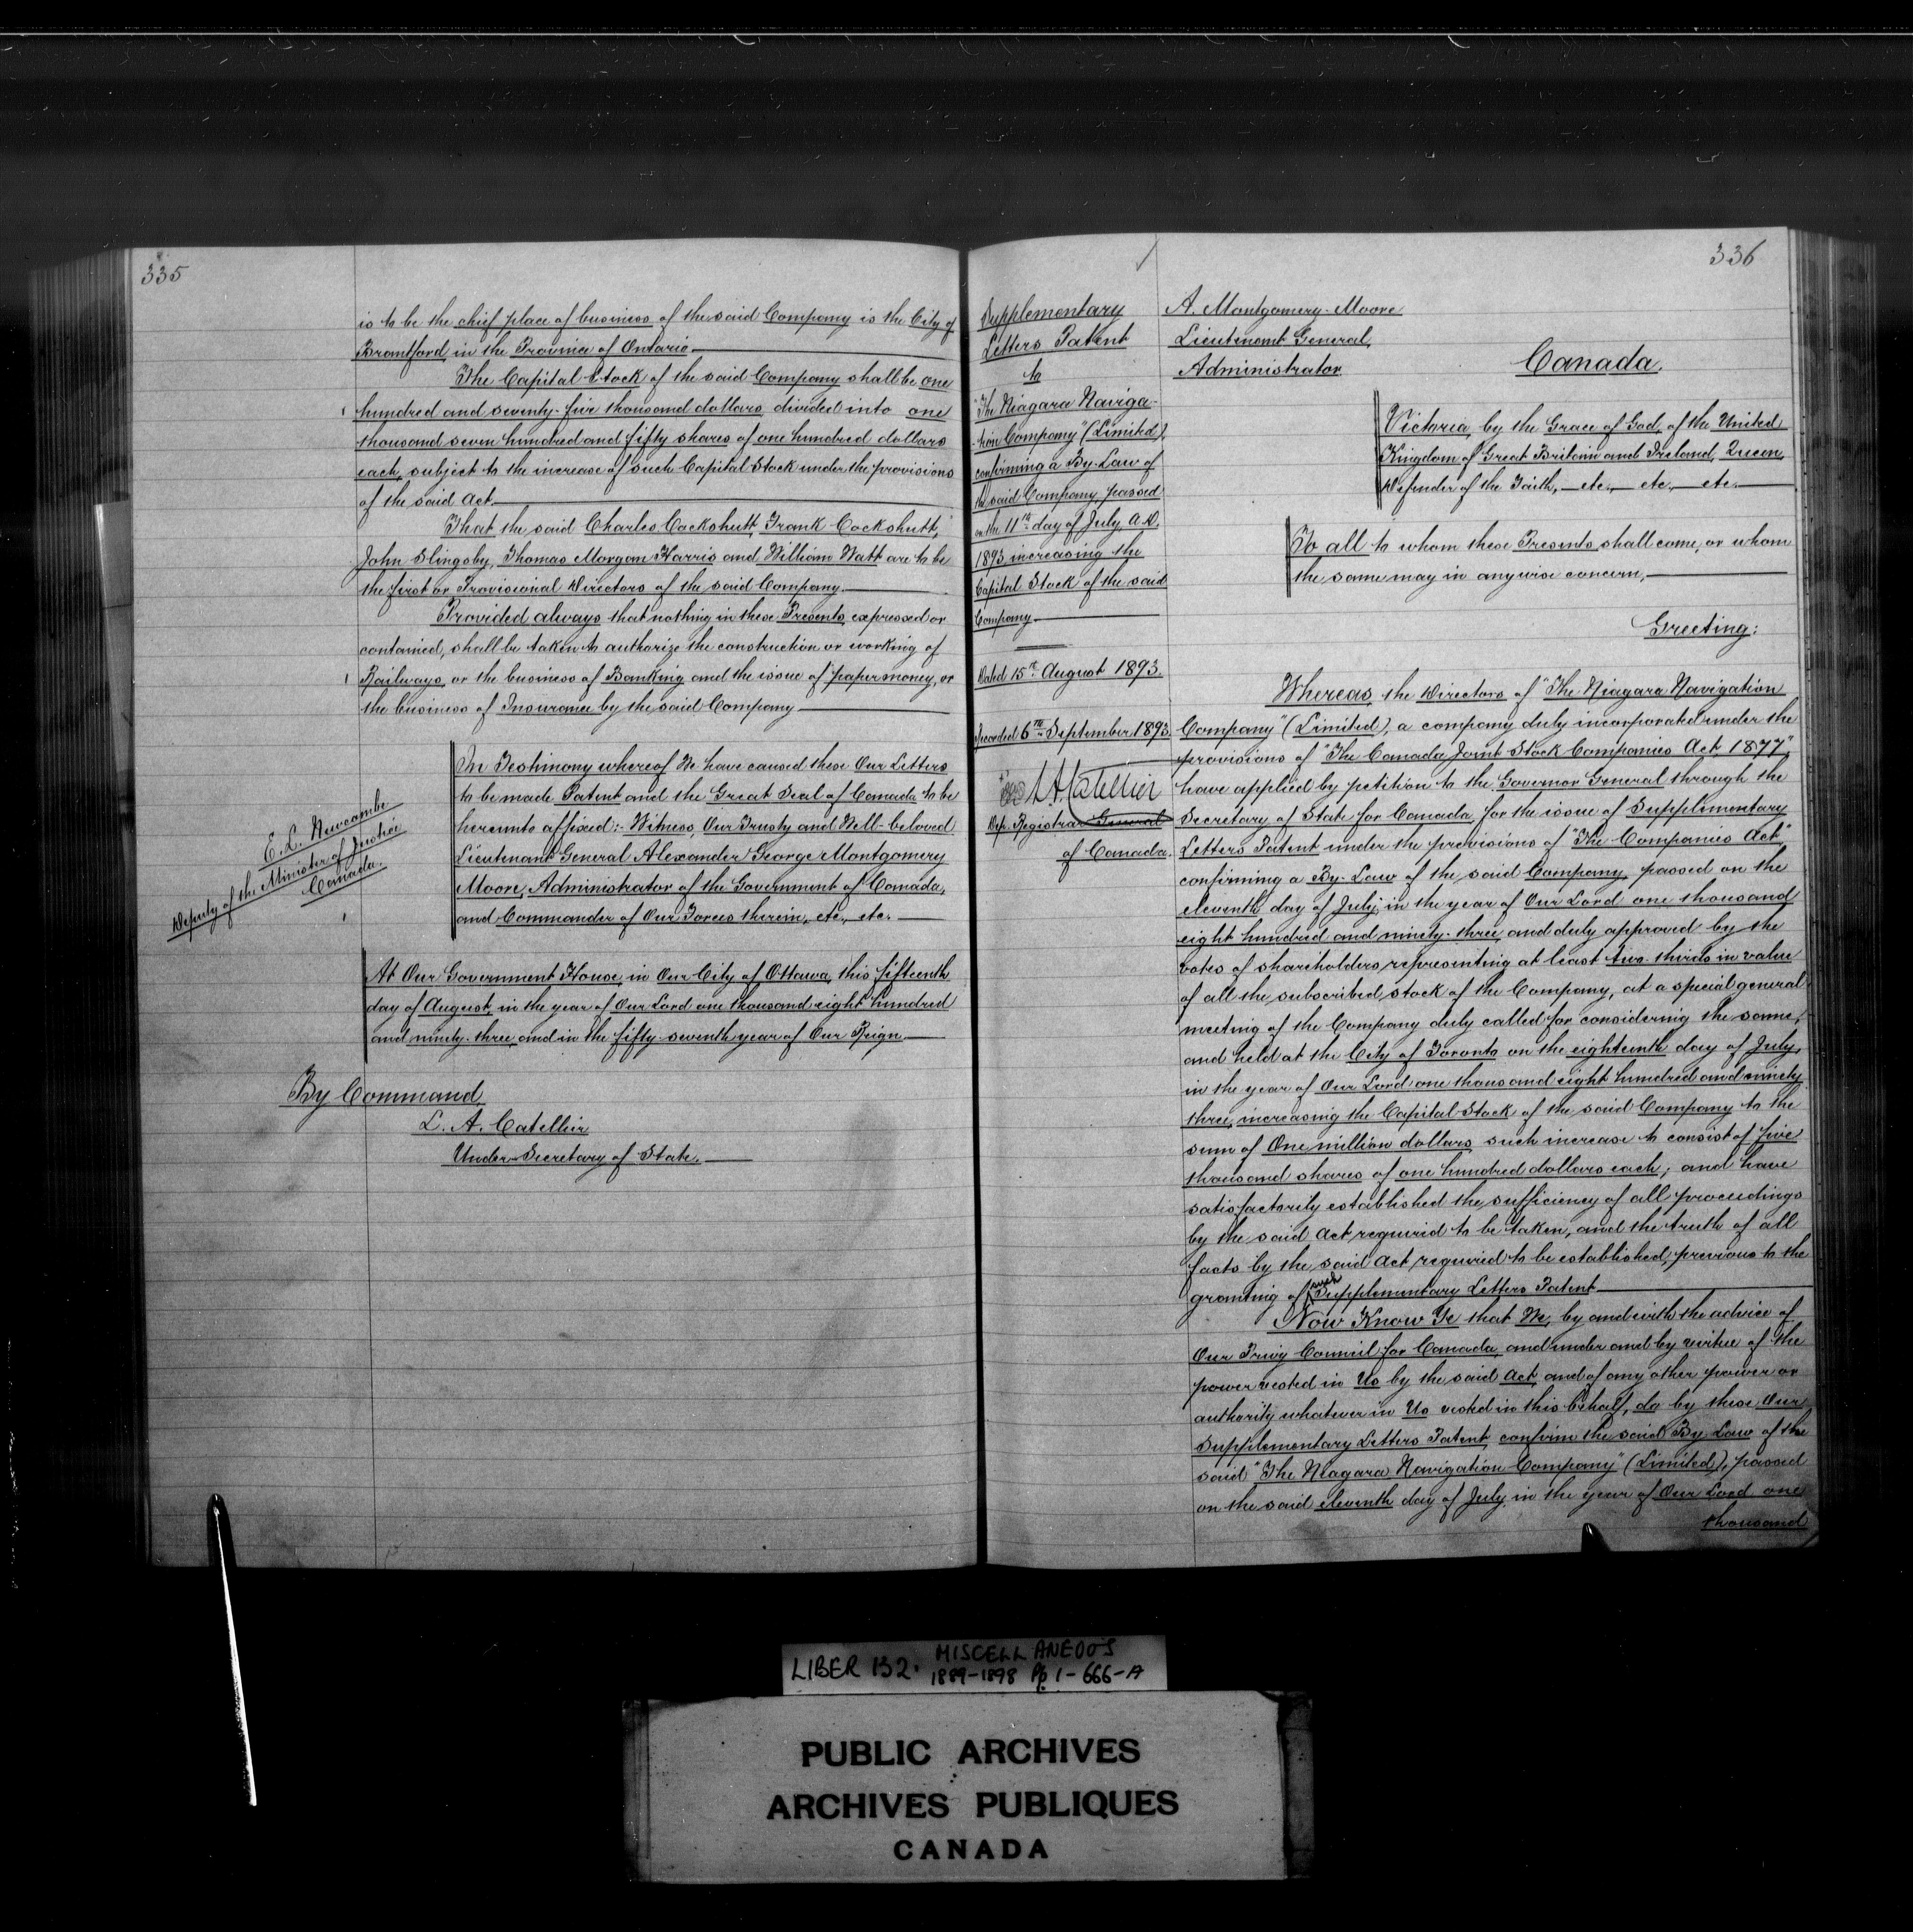 335
is to be the chief place of business of the said Company is the City of
Brantford in the Province of Ontario
The Capital Stock of the said Company shall be one
hundred and seventy-five thousand dollars divided into one
thousand seven hundred and fifty shares of one hundred dollars
each, subject to the increase of such Capital Stock under the provisions
of the said Act
That the said Charles Cockshutt, Frank Cockshutt,
John Slingsby, Thomas Morgan Harris and William Watt are to be
the first or Provisional Directors of the said Company
Provided always that nothing in these Presents expressed or
contained, shall be taken to authorize the construction or working of
Railways, or the business of Banking and the issue of paper money, or
the business of Insurance by the said Company
In Testimony whereof We have caused these Our Letters
to be made Patent and the Great Seal of Canada to be
hereunto affixed:- Witness, Our Trusty and Well-beloved
Lieutenant General Alexander George Montgomery
Moore, Administrator of the Government of Canada,
and Commander of Our Forces therein, etc., etc.
E. L. Newcombe
Deputy of the Minister of Justice
Canada.
At Our Government House, in Our City of Ottawa, this fifteenth
day of August, in the year of Our Lord one thousand eight hundred
and ninety-three, and in the fifty-seventh year of Our Reign
By Command,
L. A. Catellier
Under-Secretary of State.
336
Supplementary
Letters Patent
to
"The Niagara Naviga-
tion Company" (Limited),
confirming a By-Law of
the said Company passed
on the 11th day of July A.D.
1893 increasing the
Capital Stock of the said
Company
Dated 15th August 1893.
Recorded 6th September 1893
L. A. Catellier
Dep. Registrar General
of Canada.
A. Montgomery-Moore
Lieutenant General,
Administrator
Canada.
Victoria, by the Grace of God, of the United
Kingdom of Great Britain and Ireland, Queen,
Defender of the Faith, etc., etc., etc.
To all to whom these Presents shall come, or whom
the same may in anywise concern,
Greeting:
Whereas, the Directors of "The Niagara Navigation
Company" (Limited), a company duly incorporated under the
provisions of "The Canada Joint Stock Companies Act, 1877",
have applied by petition to the Governor General through the
Secretary of State for Canada, for the issue of Supplementary
Letters Patent under the provisions of "The Companies Act"
confirming a By-Law of the said Company, passed on the
eleventh day of July, in the year of Our Lord one thousand
eight hundred and ninety-three, and duly approved by the
votes of shareholders representing at least two-thirds in value
of all the subscribed stock of the Company, at a special general
meeting of the Company duly called for considering the same,
and held at the City of Toronto on the eighteenth day of July,
in the year of Our Lord one thousand eight hundred and ninety
three, increasing the Capital Stock of the said Company to the
sum of One million dollars, such increase to consist of five
thousand shares of one hundred dollars each; and have
satisfactorily established the sufficiency of all proceedings
by the said Act required to be taken, and the truth of all
facts by the said Act required to be established, previous to the
granting of such Supplementary Letters Patent
Now Know Ye that We, by and with the advice of
Our Privy Council for Canada, and under and by virtue of the
power vested in Us by the said Act, and of any other power or
authority whatever in Us vested in this behalf, do by these Our
Supplementary Letters Patent, confirm the said By-Law of the
said "The Niagara Navigation Company" (Limited), passed
on the said eleventh day of July in the year of Our Lord one
thousand
LIBER 132. MISCELLANEOUS
1889-1898 Pp. 1-666-A
PUBLIC ARCHIVES
ARCHIVES PUBLIQUES
CANADA